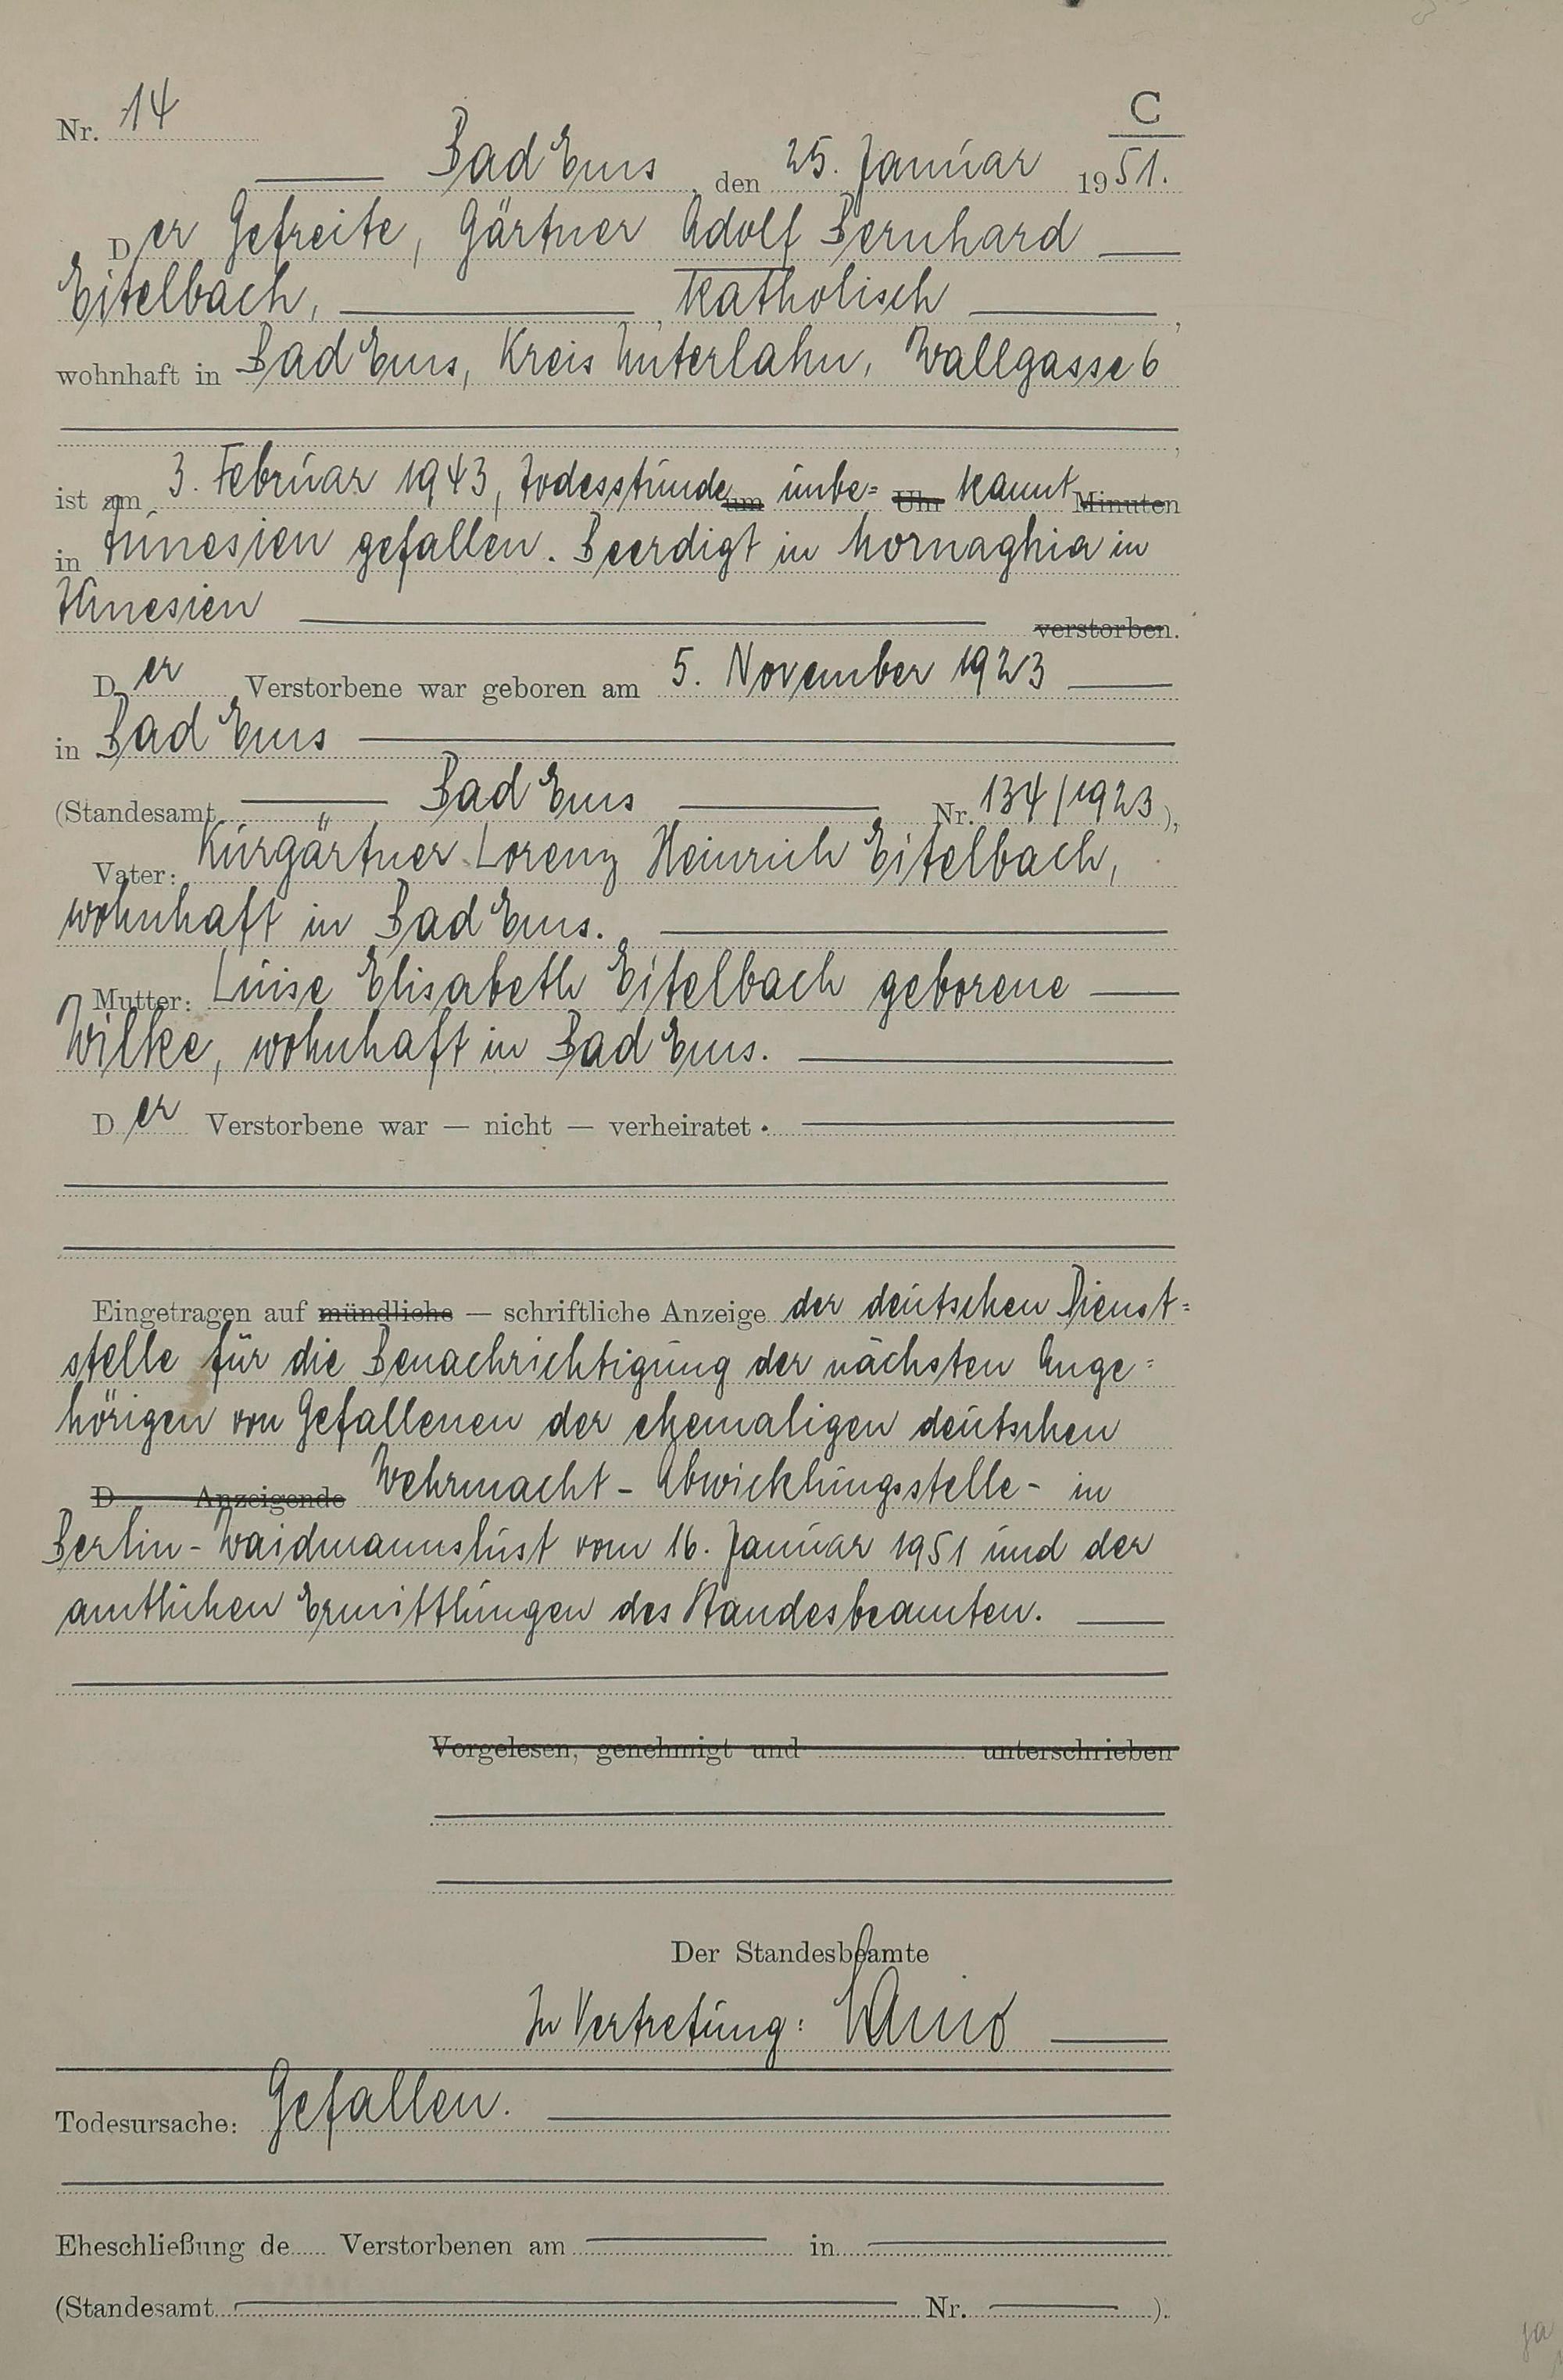 C
Nr. 14
Bad Ems, den 25. Januar 1951.
Der Gefreite, Gärtner Adolf Bernhard
Eitelbach, , katholisch ,
wohnhaft in Bad Ems, Kreis Unterlahn, Wallgasse 6
,
ist am 3. Februar 1943, Todesstunde um unbe= Uhr kannt Minuten
in Tunesien gefallen. Beerdigt in Mornaghia in
Tunesien verstorben.
Der Verstorbene war geboren am 5. November 1923
in Bad Ems
(Standesamt Bad Ems Nr. 134/1923),
Vater: Kurgärtner Lorenz Heinrich Eitelbach,
wohnhaft in Bad Ems.
Mutter: Luise Elisabeth Eitelbach geborene
Wilke, wohnhaft in Bad Ems.
Der Verstorbene war — nicht — verheiratet.
Eingetragen auf mündliche — schriftliche Anzeige der deutschen Dienst=
stelle für die Benachrichtigung der nächsten Ange=
hörigen von Gefallenen der ehemaligen deutschen
D Anzeigende Wehrmacht - Abwicklungsstelle - in
Berlin - Waidmannslust vom 16. Januar 1951 und der
amtlichen Ermittlungen des Standesbeamten.
Vorgelesen, genehmigt und unterschrieben
Der Standesbeamte
In Vertretung:
Todesursache: Gefallen.
Eheschließung de Verstorbenen am in
(Standesamt Nr. ).
ja